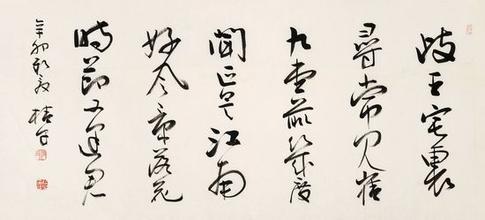 岐王宅裏
尋常見崔
九堂前幾度
聞正是江南
好風景落花
時節又逢君
辛卯